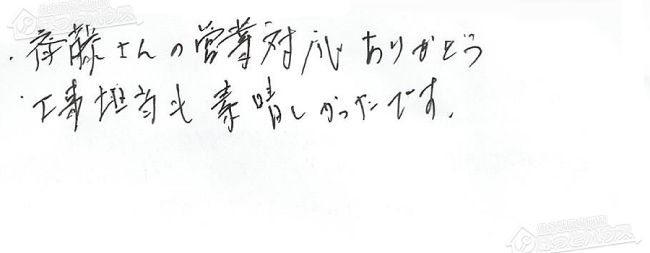 ・斉藤さんの営業対応ありがとう
・工事担当も素晴しかったです。